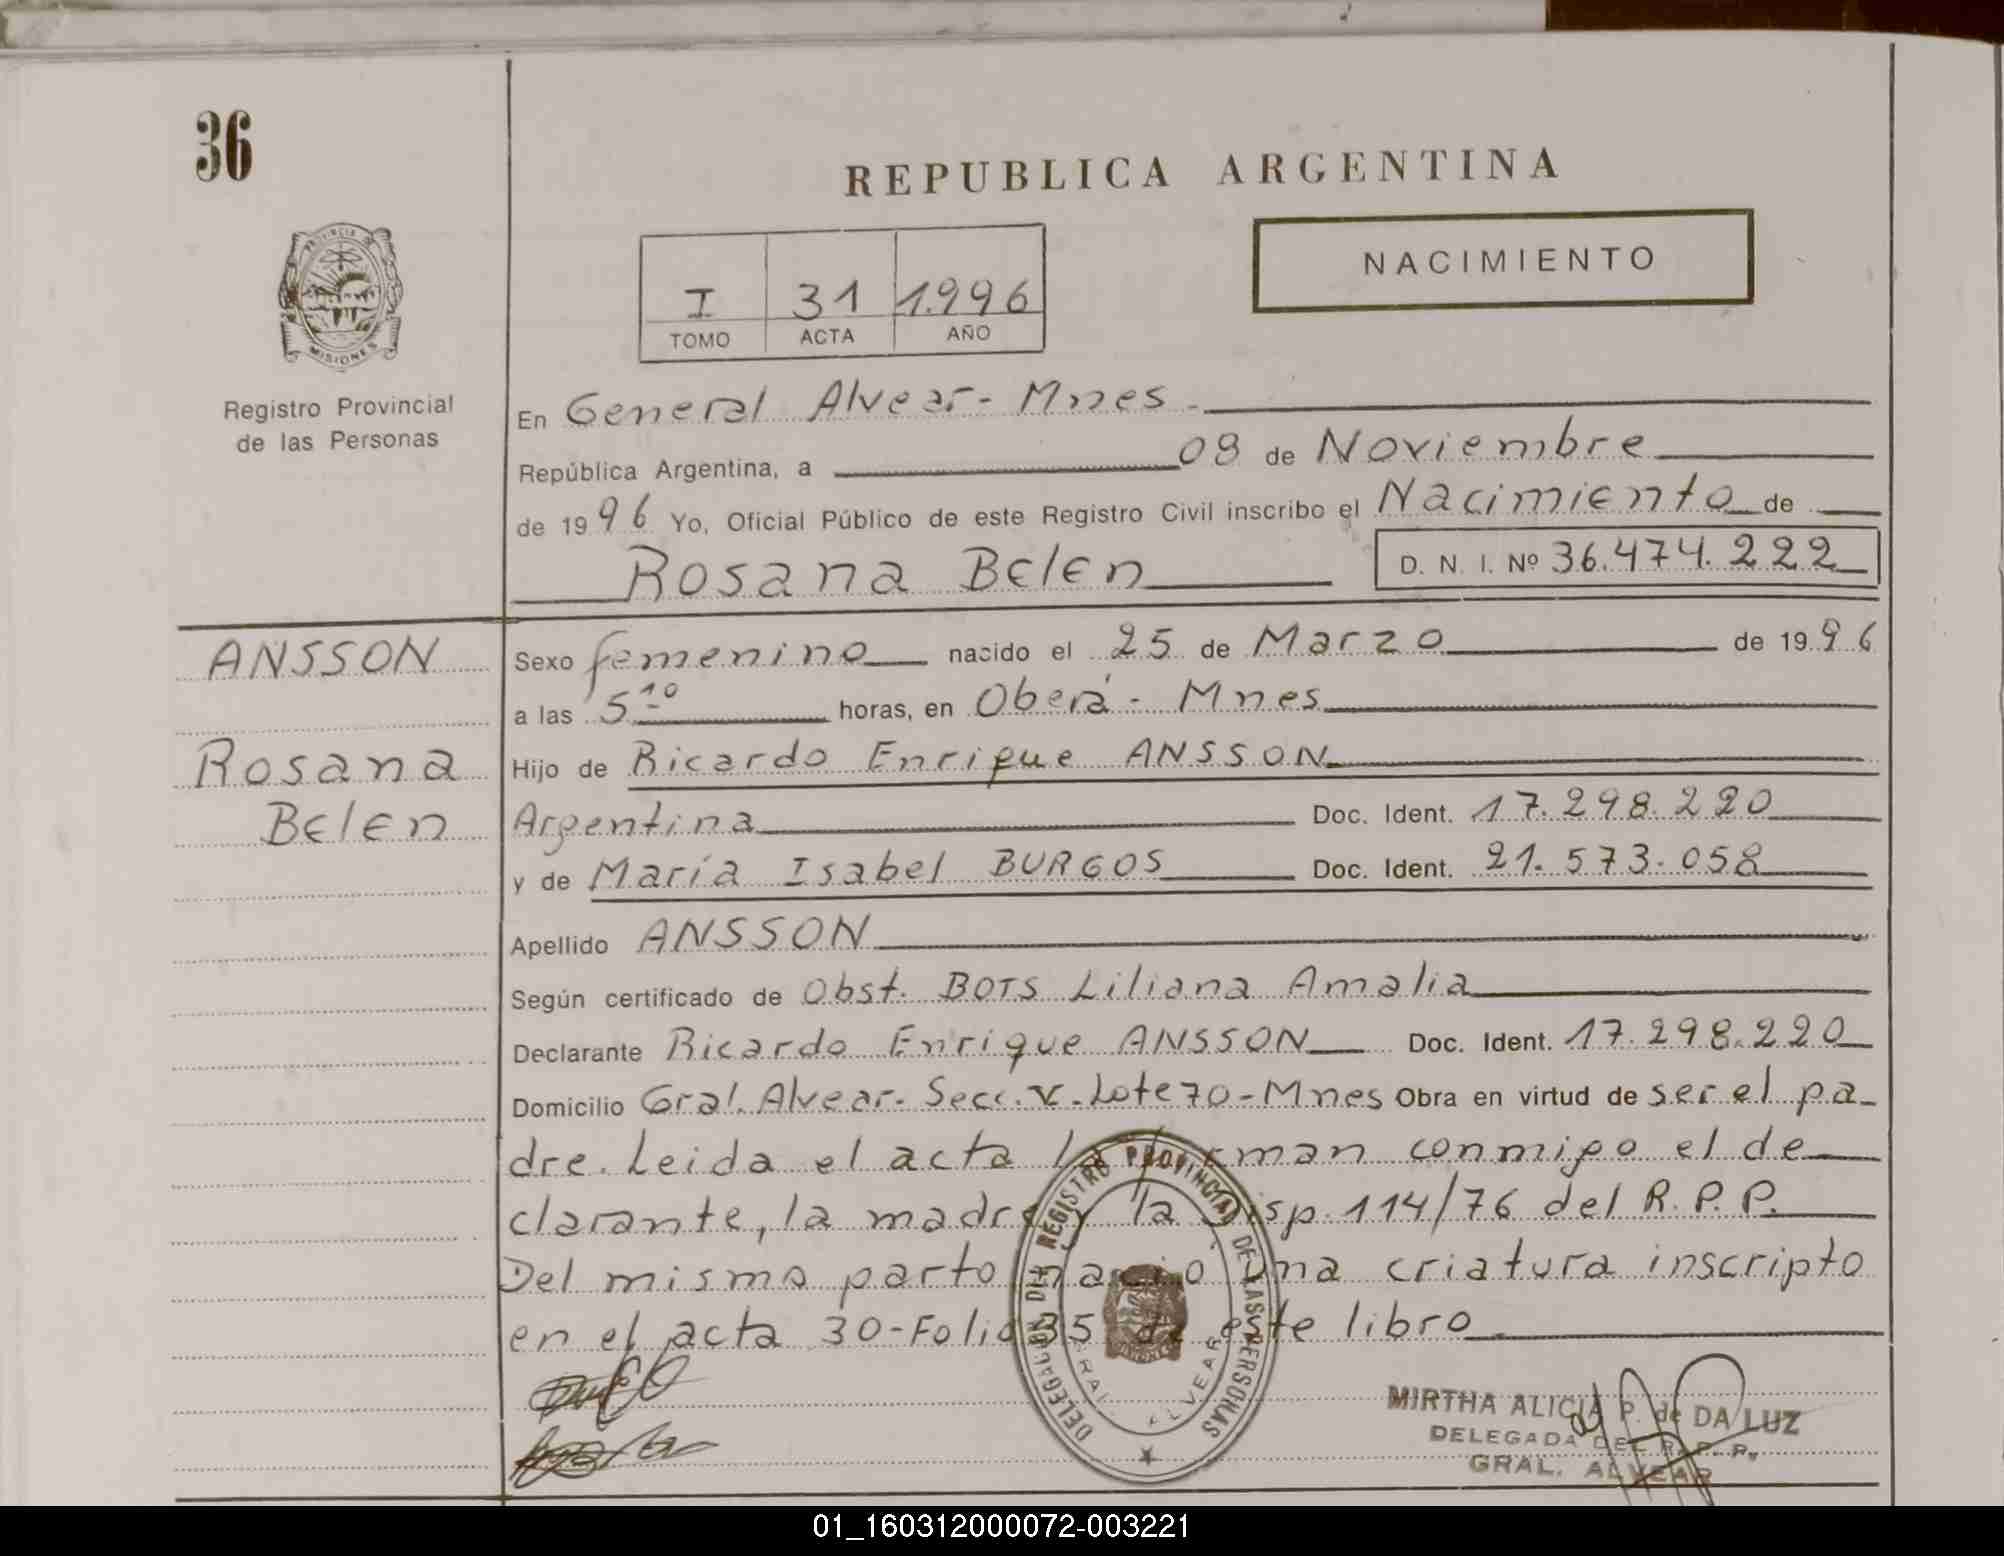 36
REPUBLICA ARGENTINA
PROVINCIA DE
MISIONES
NACIMIENTO
I 31 1.996
TOMO ACTA AÑO
Registro Provincial
de las Personas
En General Alvear - Mnes -
República Argentina, a 08 de Noviembre
de 1996 Yo, Oficial Público de este Registro Civil inscribo el Nacimiento de
Rosana Belen D. N. I. Nº 36.474.222
ANSSON
Rosana
Belen
Sexo femenino nacido el 25 de Marzo de 1996
a las 5 10 horas, en Oberá - Mnes
Hijo de Ricardo Enrique ANSSON
Argentina Doc. Ident. 17.298.220
y de María Isabel BURGOS Doc. Ident. 21.573.058
Apellido ANSSON
Según certificado de Obst. BOTS Liliana Amalia
Declarante Ricardo Enrique ANSSON Doc. Ident. 17.298.220
Domicilio Gral. Alvear - Secc. V - Lote 70 - Mnes Obra en virtud de ser el pa-
dre. Leida el acta la firman conmigo el de
clarante, la madre y la Disp. 114/76 del R.P.P.
Del mismo parto nacio una criatura inscripto
en el acta 30 - Folio 35 de este libro
DELEGACION DEL REGISTRO PROVINCIAL DE LAS PERSONAS
GRAL. ALVEAR
MIRTHA ALICIA P. de DA LUZ
DELEGADA DEL R. P. P.
GRAL. ALVEAR
01_160312000072-003221